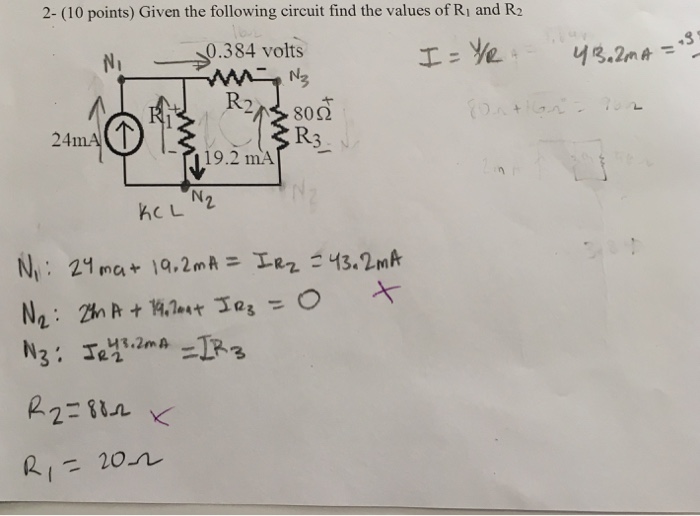 2- (10 points) Given the following circuit find the values of R1 and R2
I = V/R
43.2mA =
0.384 volts
N1
N3
R2
R1
+
80Ω
R3
24mA
19.2 mA
N2
KCL
N1: 24ma + 19.2mA = IR2 = 43.2mA
N2: 24mA + 19.2mA + IR3 = 0 X
N3: IR2 43.2mA = IR3
R2 = 88Ω X
R1 = 20Ω